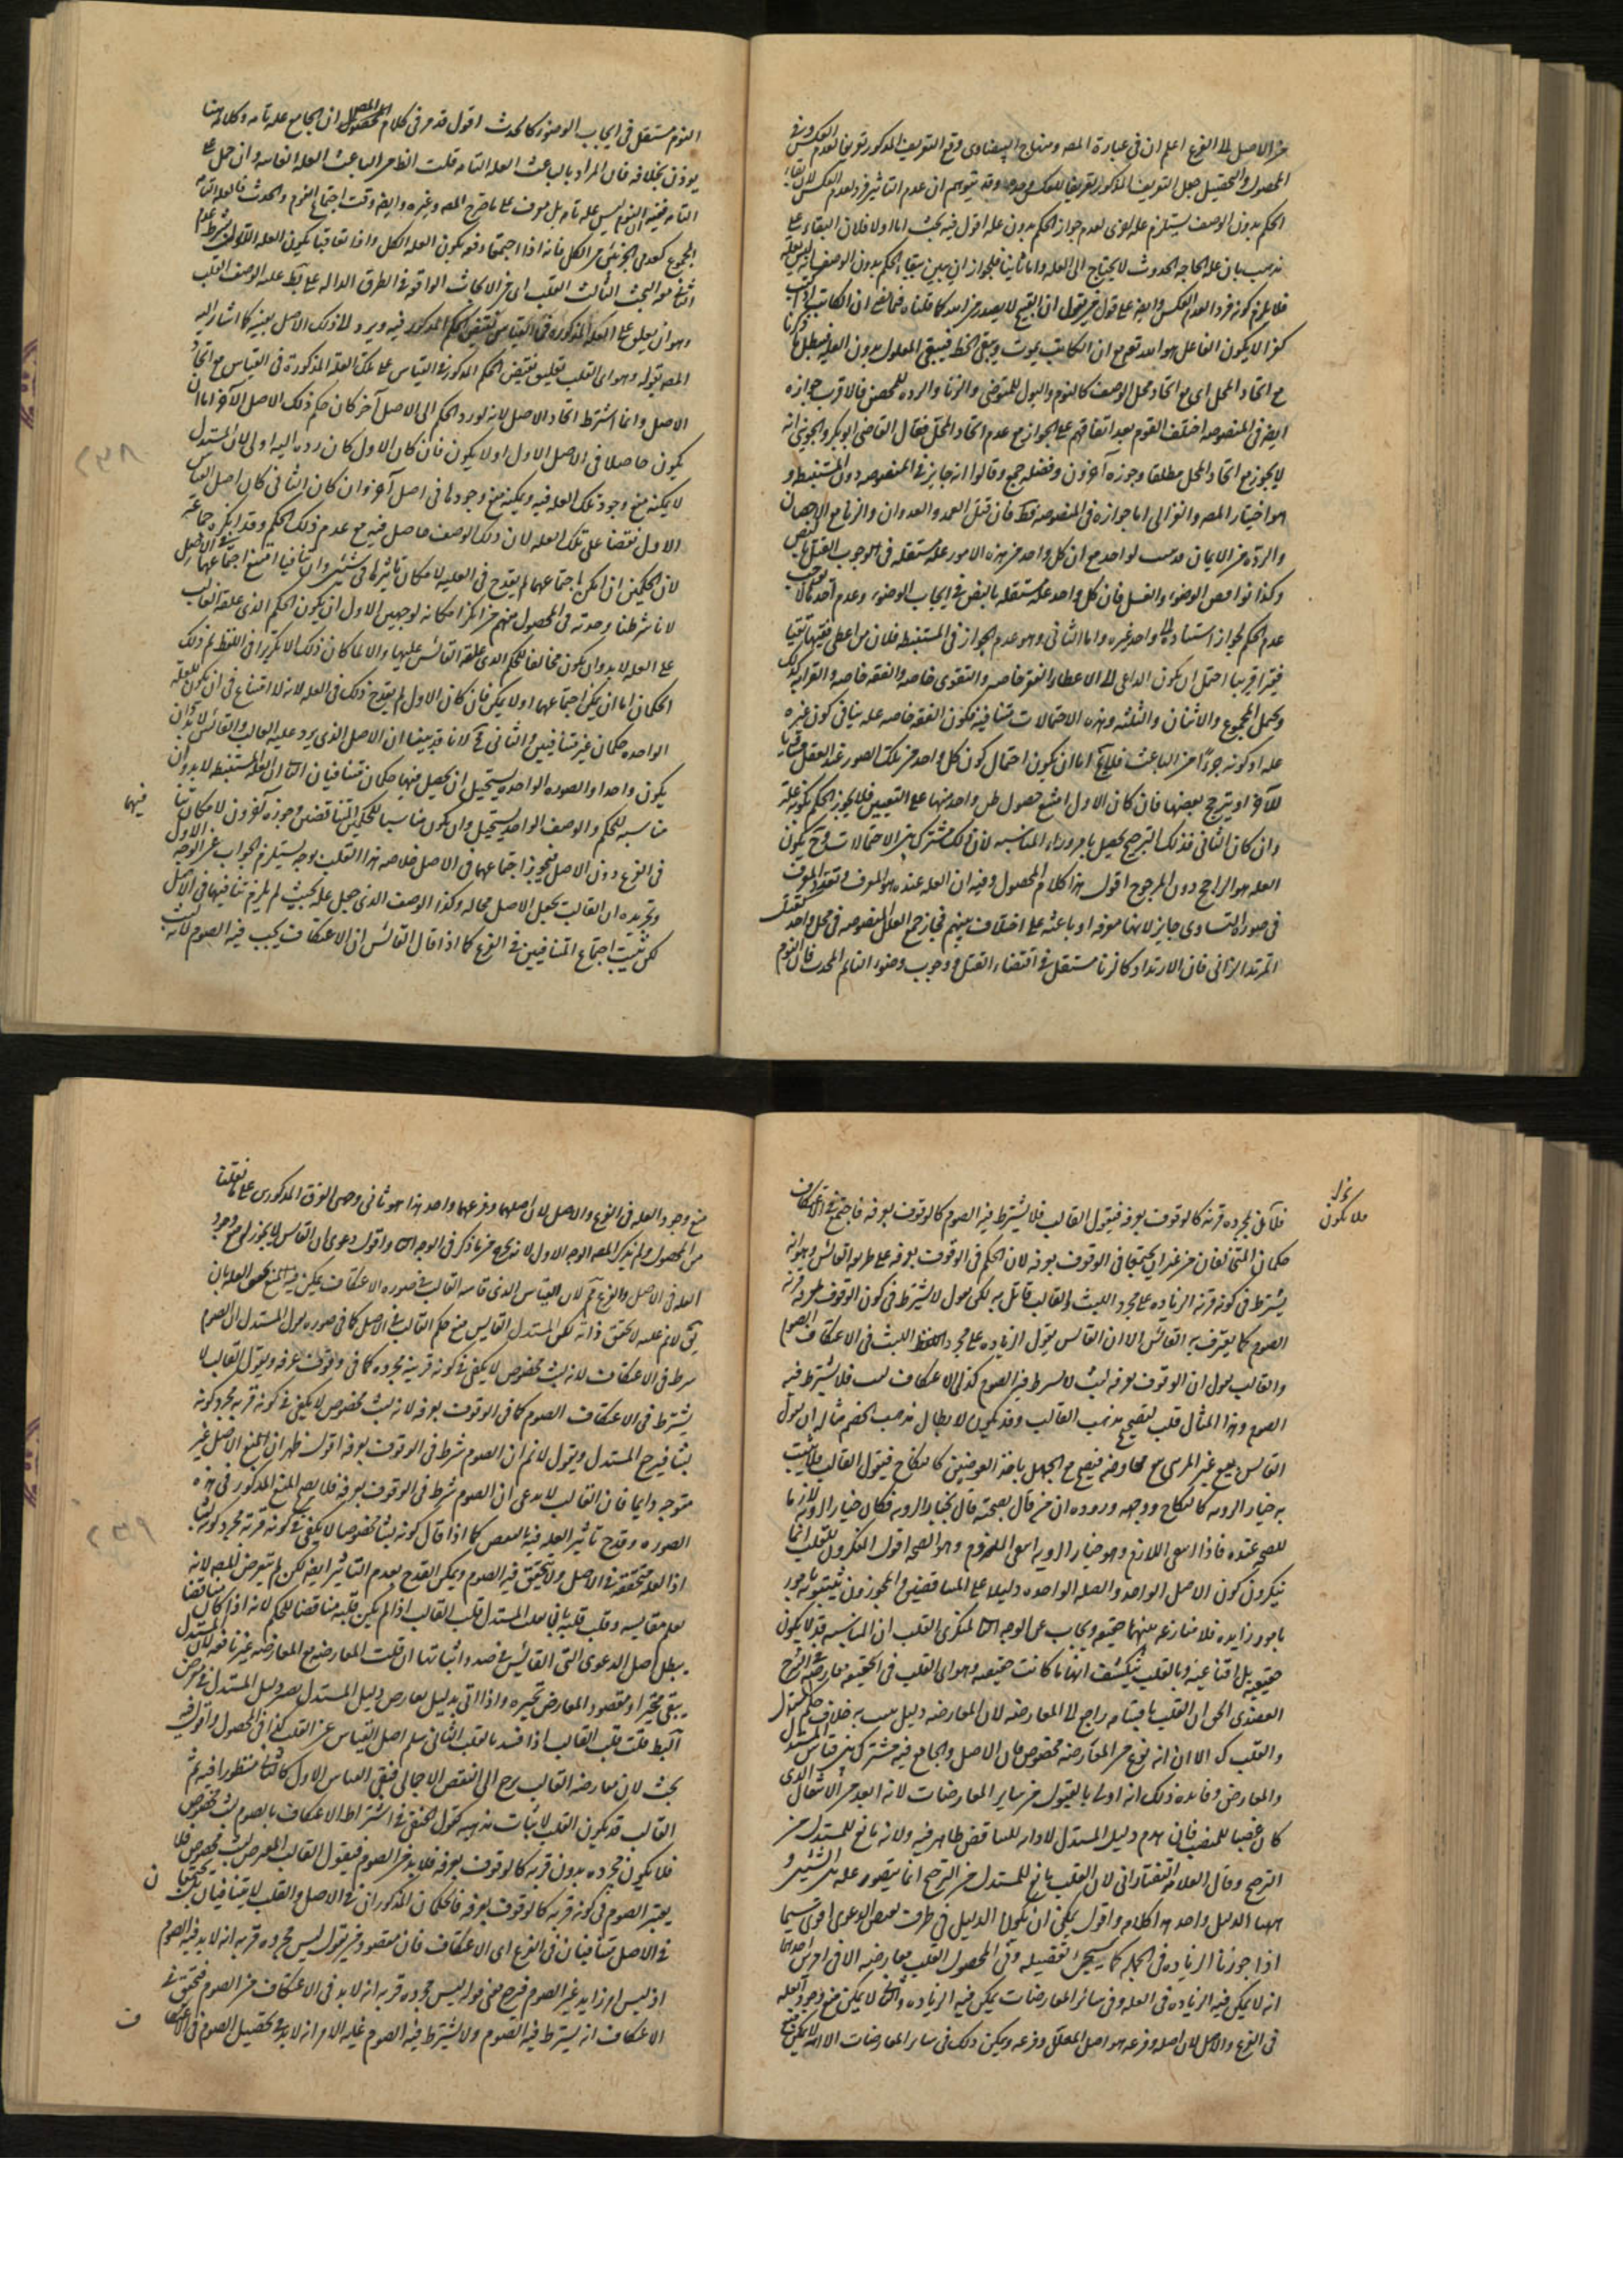 من الاصل الى الفرع اعلم ان في عبارة المصه ومنهاج البيضاوى وقع التعريف المذكور تعريفا لعدم العكس وفى
المحصول والتحصيل جعل التعريف المذكور تعريفا للعكس وحده وقد يتوهم ان عدم التاثير فرد لعدم العكس لان بقاء
الحكم بدون الوصف يستلزم علة اخرى لعدم جواز الحكم بدون علة اقول فيه بحث اما اولا فلان البقاء على
مذهب بان علة الحاجة الحدوث لا يحتاج الى العلة واما ثانيا فلجواز ان يبين بقاء الحكم بدون الوصف
فلا يلزم كونه فردا لعدم العكس وايضا على قول من يقول ان القبيح لا يصدر من الله كما قلناه فى ان الكاتب اذا كتب
كفرا لا يكون الفاعل هو الله تع مع ان الكاتب يموت ويبقى الخط فيبقى المعلول بدون العلة فيبطل
مع اتحاد المحل اى مع اتحاد محل الوصف كالنوم والبول للمتوضى والزنا والرده للمحصن فالاقرب جوازه
ايضا فى المنصوصه اختلف القوم بعد اتفاقهم على الجواز مع عدم اتحاد المحل فقال القاضى ابو بكر والجوينى انه
لا يجوز مع اتحاد المحل مطلقا وجوزه آخرون وفصله جمع وقالوا انه جايز فى المنصوصه دون المستنبطه و
هو اختيار المصه والغزالى اما جوازه فى المنصوصه فكـ فان قتل العمد والعدوان والزنا مع الاحصان
والردة من الايمان لواحد مع ان كل واحد من هذه الامور علة مستقله فى الوجوب القتل بالنص
وكذا نواقص الوضوء والغسل فان كل واحد علة مستقله بالنص فى ايجاب الوضوء وعدم احدها لا يوجب
عدم الحكم لجواز استناده الى واحد غيره واما الثانى وهو عدم الجواز فى المستنبطه فلان من اعطى فقيها تقيا
فقيرا قريبا احتمل ان يكون الداعى الى الاعطاء الفقر خاصه والتقوى خاصه والفقه خاصه والقرابه كذلك
ويحتمل المجموع والاثنان والثلثه وهذه الاحتمالات متنافيه فكون الفقه خاصه علة ينافى كون غيره
علة او كونه جزءا من الباعث فلا اما ان يكون احتمال كون كل واحد من تلك الصور عند العقل مساويا
للآخر او يترجح بعضها فان كان الاول امتنع حصول ظن واحد منها على التعيين فلا يجوز الحكم بكونه علة
وان كان الثانى فذلك الترجيح يحصل بامر وراء المناسبه لان ذلك مشترك بين الاحتمالات وح يكون
العله هو الراجح دون المرجوح اقول هذا كلام المحصول وفيه ان العله عنده هو المعرف وتعدد المعرف
فى صورة التساوى جايز لانها معرفه او باعثه على اختلاف بينهم فجاز جمع العلل المنصوصه فى محل واحد كقتل
المرتد الزانى فان الارتداد كالزنا مستقل فى اقتضاء القتل ووجوب وضوء النايم المحدث فان النوم
النوم مستقل فى ايجاب الوضوء كالحدث اقول قد مر فى كلام المحصول ان الجامع علة تامه وكلامه هنا
يوذن بخلافه فان المراد بالباعث العله التامه قلت الظاهر الباعث العله الناقصه وان حمل على
التامه فقيه ان النوم ليس علة تامه بل معرف على ما صرح المصه وغيره وايضا وقت اجتماع النوم والحدث فالعله التامه
المجموع كعدمى الجزئين من الكل فانه اذا اجتمعا دفعه يكون العله الكل واذا تعاقبا يكون العله الاولى بشرط عدم
الثانى معه البحث الثالث القلب اى من الابحاث الواقعه فى الطرق الداله على عليه الوصف القلب
وهو ان يعلق على العله المذكوره فى القياس نقيض الحكم المذكور فيه ويرد الى ذلك الاصل بعينه كما اشار اليه
المصه بقوله وهو اى القلب تعليق نقيض الحكم المذكور فى القياس على تلك العلة المذكورة فى القياس مع اتحاد
الاصل وانما اشترط اتحاد الاصل لانه لو رد الحكم الى الاصل آخر كان حكم ذلك الاصل الآخر اما ان
يكون حاصلا فى الاصل الاول او لا يكون فان كان الاول كان رده اليه اولى لان المستدل
لا يمكنه منع وجود تلك العله فيه ويمكنه منع وجودها فى اصل آخر وان كان الثانى كان اصل القياس
الاول نقضا على تلك العله لان ذلك الوصف حاصل فيه مع عدم ذلك الحكم وقد انكره جماعة
لان الحكمين ان امكن اجتماعهما لم يقدح فى العليه لامكان تاثيرها فى شيئين وان تنافيا امتنع اجتماعهما فى الاصل
لانا شرطنا وحدته فى المحصول منهم من انكر امكانه لوجهين الاول ان يكون الحكم الذى علقه القالب
على العله لا بد وان يكون مخالفا للحكم الذى علقه القائس عليها والا لما كان ذلك الا تكريرا فى اللفظ ثم ذلك
الحكمان اما ان يمكن اجتماعهما او لا يمكن فان كان الاول لم يقدح ذلك فى العله لانه لا امتناع فى ان يكون للعلة
الواحده حكمان غير متنافيين والثانى لانا قد بينا ان الاصل الذى يرد عليه القالب والقائس لا بد وان
يكون واحدا والصوره الواحده يستحيل ان يحصل فيها حكمان متنافيان ان العلة المستنبطه لا بد وان
مناسبه للحكم والوصف الواحد يستحيل وان يكون مناسبا للحكمين المتناقضين وجوزه آخرون لامكان تنافيهما
فى الفرع دون الاصل فيجوز اجتماعهما فى الاصل خلاصه هذا القلب بوجه يستلزم الجواب عن الوجه الاول
وتجريده ان القالب يجعل الاصل بحاله وكذا الوصف الذى جعل علة بحيث لم يلزم تنافيهما فى الاصل
لكن يثبت اجتماع المتنافيين فى الفرع كما اذا قال القائس ان الاعتكاف يجب فيه الصوم لانه لبث
فيها
٢٣٨
فلا يكون بمجرده قربة كالوقوف بعرفه فيقول القالب فلا يشترط فيه الصوم كالوقوف بعرفه فاجتمع فى الاعتكاف
حكمان المتنافيان من غير ان يجتمعا فى الوقوف بعرفه لان الحكم فى الوقوف بعرفه على طريق القائس وهو انه
يشترط فى كونه قربة الزياده على مجرد اللبث والقالب قائل به لكن يقول لا يشترط فى كون الوقوف بعرفه قربة
الصوم كما يعترف به القائس الا ان القائس يقول الزياده على مجرد اللبث فى الاعتكاف الصوم
والقالب يقول ان الوقوف بعرفه لبث لا يشترط فيه الصوم كذلك الاعتكاف لبث فلا يشترط فيه
الصوم وهذا المثال قلب لتصحيح مذهب القالب وقد يكون لابطال مذهب الخصم مثاله ان يقول
القائس بيع غير المرئى بيع معاوضه فيصح مع الجهل باحد العوضين كالنكاح فيقول القالب فلا يثبت
به خيار الرويه كالنكاح ووجه وروده ان من قال بصحته قال بخيار الرويه فكان خيار الرويه لازما
للصحه عنده فاذا انتفى اللازم وهو خيار الرويه انتفى الملزوم وهو الصحه اقول المنكرون للقلب انما
ينكرون كون الاصل الواحد والعله الواحده دليلا على المتناقضين والمجوزون يثبتونه بامور
بامور زايده فلا منازعه بينهما حقيقه ويجاب عن الوجه الثانى لمنكرى القلب ان المناسبه قد لا يكون
حقيقيه بل اقناعيه وبالقلب ينكشف انها ما كانت حقيقيه وهو اى القلب فى الحقيقه معارضه شرح
العضدى الحق ان القلب باقسامه راجع الى المعارضه لان المعارضه دليل يثبت به خلاف حكم المستدل
والقلب كـ الا انه نوع من المعارضه مخصوص فان الاصل والجامع فيه مشترك بين قياس المستدل
والمعارض وفايده ذلك انه اولى بالقبول من ساير المعارضات لانه ابعد من الانتقال الذى
كان غصبا للمنصب فان هدم دليل المستدل لادائه للتناقض ظاهر فيه ولانه مانع للمستدل من
الترجيح وقال العلامه التفتازانى لان القلب مانع للمستدل من الترجيح انما يتصور على بين الشيئين و
ههنا الدليل واحد هذا كلامه واقول يمكن ان يكون الدليل فى طرف بعض الدعوى اقوى سيما
اذا جوزنا الزياده فى الجمله كما سيجىء تفصيله وفى المحصول القلب معارضه الا فى امرين احدهما
انه لا يمكن فيه الزياده فى العله وفى سائر المعارضات يمكن فيه الزياده والثانى لا يمكن منع وجود العله
فى الفرع والاصل لان اصله وفرعه هو اصل المعلل وفرعه ويمكن ذلك فى ساير المعارضات الا انه لا يمكن منع
فلا يكون
منع وجود العله فى الفرع والاصل لان اصلهما وفرعهما واحد هذا هو ثانى وجهى الفرق المذكورين على ما نقلنا
من المحصول ولم يذكر المصه الوجه الاول لانه يرد عليه ما ذكر فى الوجه واقول دعوى ان القائس لا يجوز له منع وجود
العله فى الاصل والفرع لان القياس الذى قاسه القالب فى صوره الاعتكاف يمكن فيه المنع تحقق العله بان
يقول لا نم عليه لا تحقق ذاته لكن المستدل القايس منع حكم القالب فى الاصل كما فى صوره يقول المستدل الصوم
شرط فى الاعتكاف لانه لبث مخصوص لا يكفى فى كونه قربة مجرده كما فى وقوف عرفه ويقول القالب لا
يشترط فى الاعتكاف الصوم كما فى الوقوف بعرفه لانه لبث مخصوص لا يكفى فى كونه قربة بمجرد كونه
لبثا فيرجع المستدل ويقول لا نم ان الصوم شرط فى الوقوف بعرفه اقول فظهر ان المنع الاصل غير
متوجه دايما فان القالب لا يدعى ان الصوم شرط فى الوقوف بعرفه فلا يصح المنع المذكور فى هذه
الصوره وقدح تاثير العله فيه بالنقض كما اذا قال كونه لبثا مخصوصا لا يكفى فى كونه قربة مجرد كونه لبثا
اذ العله متحققه فى الاصل ولا يتحقق فيه الصوم ويمكن القدح بعدم التاثير ايضا لكن لم يتعرض له المصه لانه
يعلم مقايسه وقلب قلبه بان يقلب المستدل قلب القالب اذا لم يكن قلبه مناقضا للحكم لانه اذا كان مناقضا
يبطل اصل الدعوى التى القائس فى صدد اثباتها ان قلت المعارضه مع المعارضه غير نافعه لان المستدل
يبقى متحيرا ومقصود المعارض تحيره واذا اتى بدليل يعارض دليل المستدل يصير دليل المستدل فى معرض
السقط قلت قلب القالب اذا فسد بالقلب الثانى سلم اصل القياس عن القلب كذا فى المحصول واقول فيه
بحث لان معارضه القالب يرجع الى النقض الاجمالى فبقى القياس الاول كما كان منظورا فيه ثم
القالب قد يكون القلب لاثبات مذهبه كقول الحنفى فى اشتراط الاعتكاف بالصوم لبث مخصوص
فلا يكون مجرده بدون قربه كالوقوف بعرفه فلا بد من الصوم فيقول القالب المعترض لبث مخصوص فلا
يعتبر الصوم فى كونه قربه كالوقوف بعرفه فالحكمان المذكوران فى الاصل والقلب لا يتنافيان
فى الاصل متنافيان فى الفرع اى الاعتكاف فان مقصود من يقول ليس مجرده قربه انه لا بد فيه الصوم
اذ ليس امر زايد غير الصوم فرجع معنى قوله ليس مجرده قربه انه لا بد فى الاعتكاف من الصوم فتحقق فى
الاعتكاف انه يشترط فيه الصوم ولا يشترط فيه الصوم غايه الامر انه لا بد فى تحصيل الصوم فى الاعتكاف
ن
ف
٢٣٩